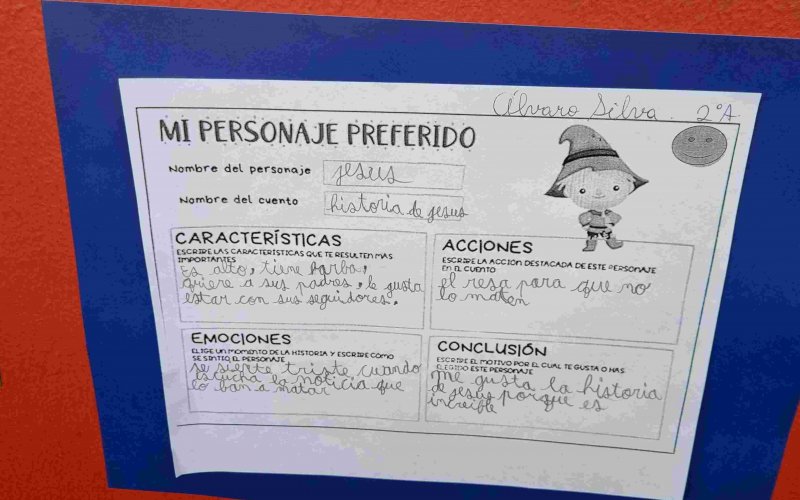 Álvaro Silva 2ºA
MI PERSONAJE PREFERIDO
Nombre del personaje jesus
Nombre del cuento historia de jesus
CARACTERÍSTICAS
ESCRIBE LAS CARACTERÍSTICAS QUE TE RESULTEN MAS
IMPORTANTES
Es alto, tiene barba,
quiere a sus padres, le gusta
estar con sus seguidores.
ACCIONES
ESCRIBE LA ACCIÓN DESTACADA DE ESTE PERSONAJE
EN EL CUENTO
el resa para que no
lo maten
EMOCIONES
ELIGE UN MOMENTO DE LA HISTORIA Y ESCRIBE CÓMO
SE SINTIÓ EL PERSONAJE
se siente triste cuando
escucha la noticia que
lo ban a matar
CONCLUSIÓN
ESCRIBE EL MOTIVO POR EL CUAL TE GUSTA O HAS
ELEGIDO ESTE PERSONAJE
me gusta la historia
de jesus porque es
increible